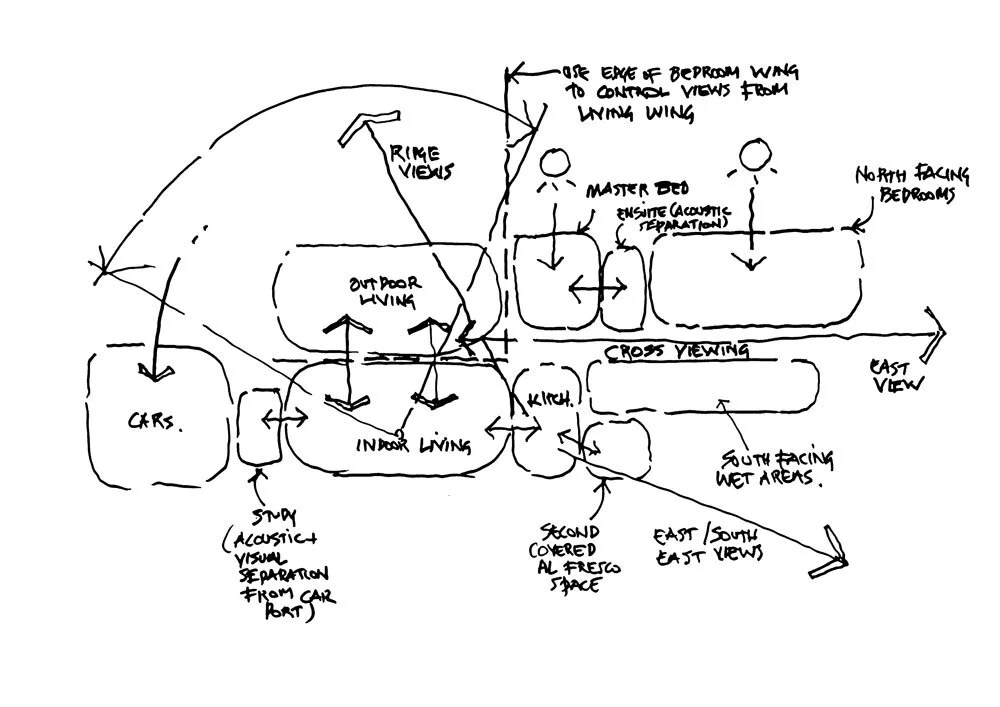 USE EDGE OF BEDROOM WING
TO CONTROL VIEWS FROM
LIVING WING
RIDGE
VIEWS
MASTER BED
ENSUITE (ACOUSTIC
SEPARATION)
NORTH FACING
BEDROOMS
OUTDOOR
LIVING
CROSS VIEWING
EAST
VIEW
CARS.
KITCH.
INDOOR LIVING
SOUTH FACING
WET AREAS.
STUDY
(ACOUSTIC +
VISUAL
SEPARATION
FROM CAR
PORT)
SECOND
COVERED
AL FRESCO
SPACE
EAST/SOUTH
EAST VIEWS